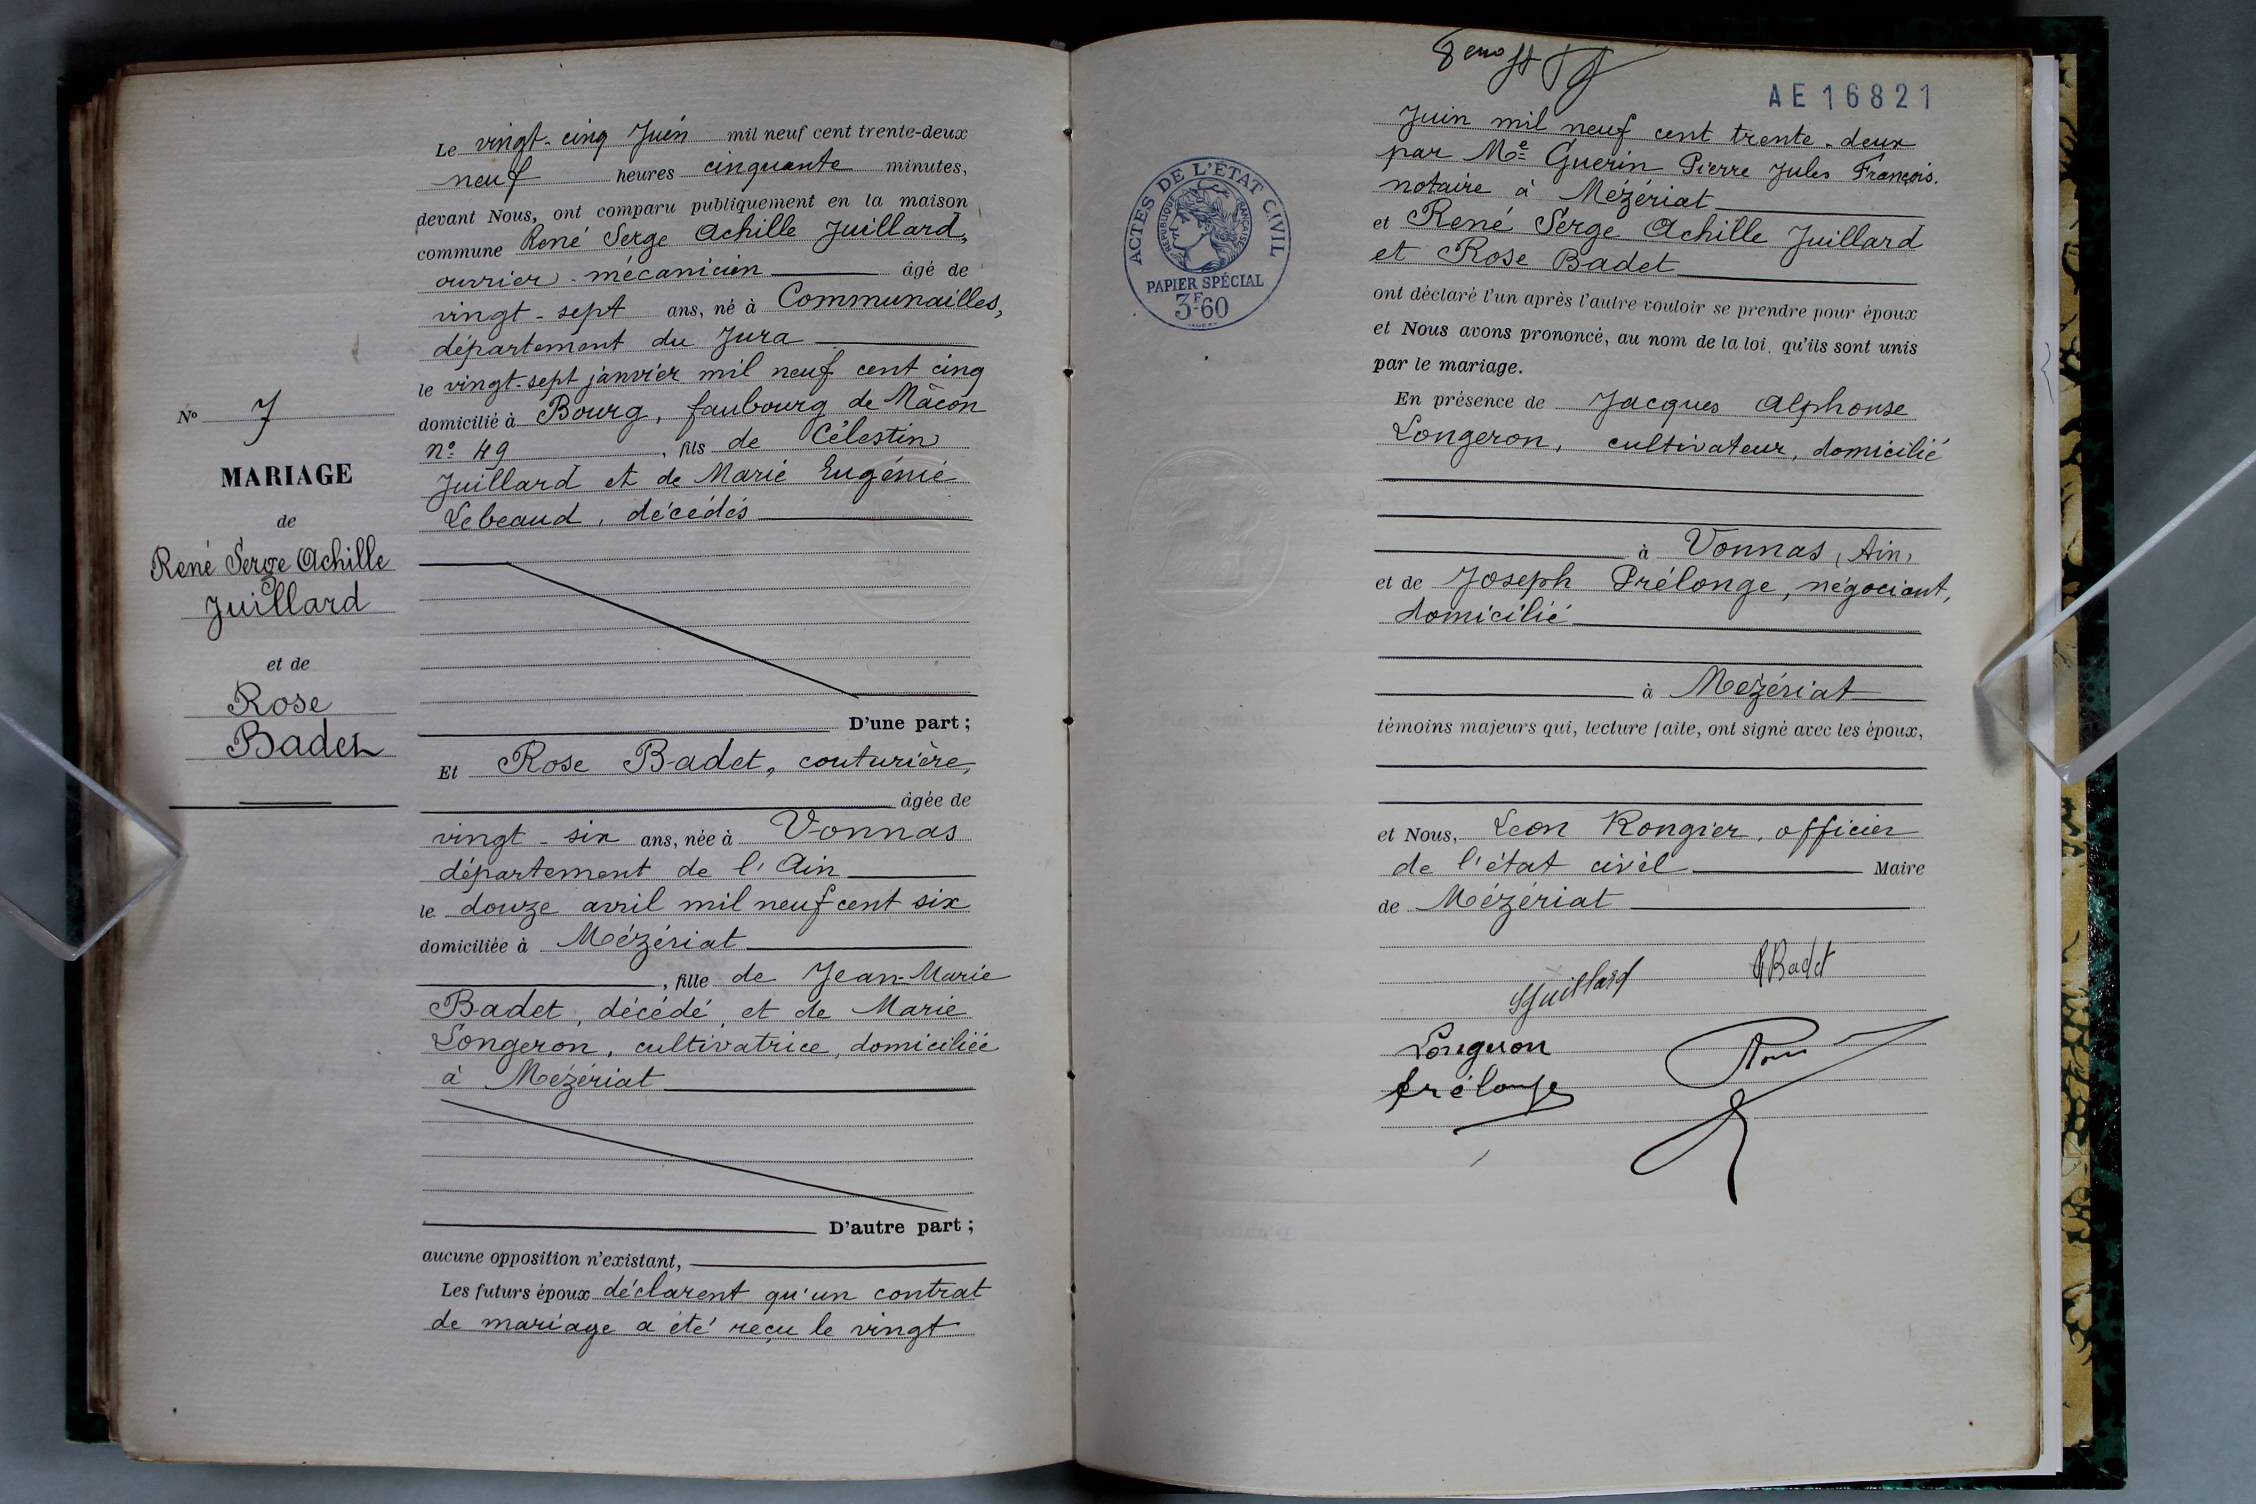 Le vingt-cinq Juin mil neuf cent trente-deux
neuf heures cinquante minutes,
devant Nous, ont comparu publiquement en la maison
commune René Serge Achille Juillard,
ouvrier-mécanicien âgé de
vingt-sept ans, né à Communailles,
département du Jura
le vingt-sept janvier mil neuf cent cinq
domicilié à Bourg, faubourg de Mâcon
n° 49, fils de Célestin
Juillard et de Marie Eugénie
Lebeaud, décédés
N° 7
MARIAGE
de
René Serge Achille
Juillard
et de
Rose
Badet
D'une part;
Et Rose Badet, couturière,
âgée de
vingt-six ans, née à Vonnas
département de l'Ain
le douze avril mil neuf cent six
domiciliée à Mézériat
, fille de Jean-Marie
Badet, décédé, et de Marie
Longeron, cultivatrice, domiciliée
à Mézériat
D'autre part;
aucune opposition n'existant,
Les futurs époux déclarent qu'un contrat
de mariage a été reçu le vingt
AE 16821
Juin mil neuf cent trente-deux
par Me Guerin Pierre Jules François.
notaire à Mézériat
et René Serge Achille Juillard
et Rose Badet
ont déclaré l'un après l'autre vouloir se prendre pour époux
et Nous avons prononcé, au nom de la loi, qu'ils sont unis
par le mariage.
ACTES DE L'ÉTAT CIVIL
RÉPUBLIQUE FRANÇAISE
PAPIER SPÉCIAL
3F60
En présence de Jacques Alphonse
Longeron, cultivateur, domicilié
à Vonnas (Ain)
et de Joseph Prélonge, négociant,
domicilié
à Mézériat
témoins majeurs qui, lecture faite, ont signé avec les époux,
et Nous, Leon Rongier, officier
de l'état civil Maire
de Mézériat
SJuillard RBadet
Longeron
Prélonge